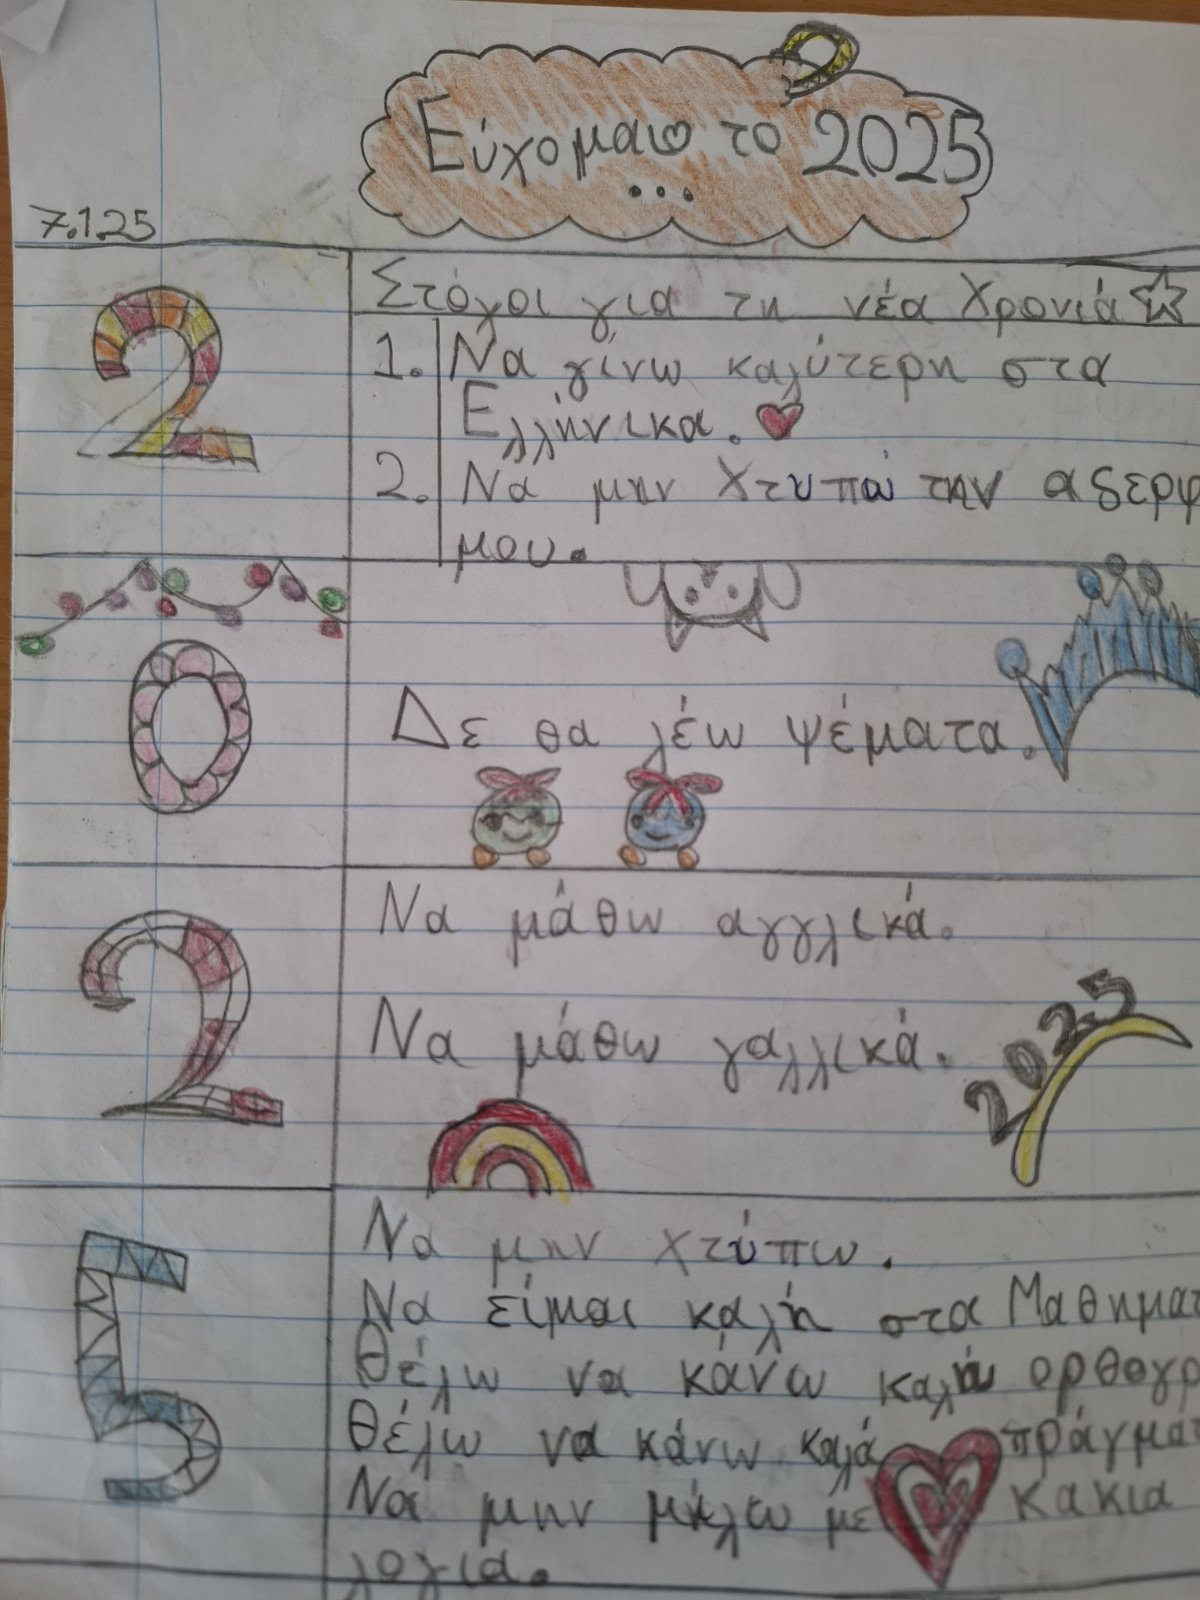 Εύχομαι το 2025
...
7.1.25
2
Στόχοι για τη νέα Χρονιά
1. Να γίνω καλύτερη στα
Ελλήνικα.
2. Να μην Χτυπάω την αδερφ
μου.
0
Δε θα λέω ψέματα.
2
Να μάθω αγγλικά.
Να μάθω γαλλικά.
2025
5
Να μην χτύπω.
Να είμαι καλή στα Μαθηματ
Θέλω να κάνω καλή ορθογρ
Θέλω να κάνω καλά πράγμα
Να μην μιλω με κακια
λογια.